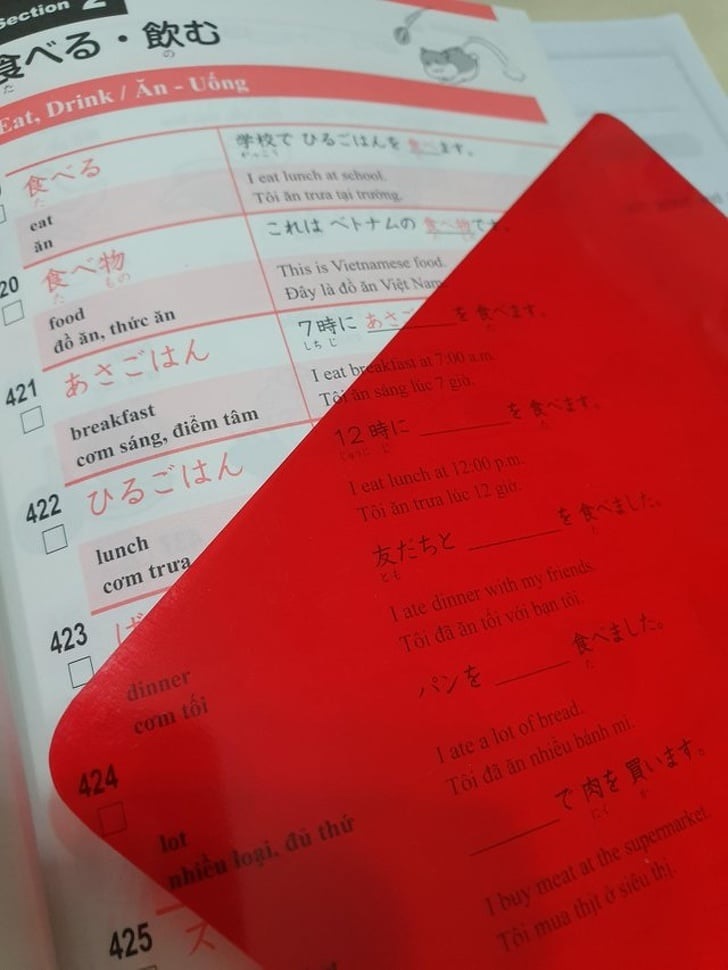 Section 2
食べる・飲む
Eat, Drink / Ăn - Uống
食べる
学校で ひるごはんを 食べます。
eat
ăn
I eat lunch at school.
Tôi ăn trưa tại trường.
20
食べ物
これは ベトナムの 食べ物です。
food
đồ ăn, thức ăn
This is Vietnamese food.
Đây là đồ ăn Việt Nam
421
あさごはん
7時に あさご を 食べます。
breakfast
cơm sáng, điểm tâm
I eat breakfast at 7:00 a.m.
Tôi ăn sáng lúc 7 giờ.
422
ひるごはん
12時に ______ を 食べます。
lunch
cơm trưa
I eat lunch at 12:00 p.m.
Tôi ăn trưa lúc 12 giờ.
423
ば
友だちと ______ を 食べました。
dinner
cơm tối
I ate dinner with my friends.
Tôi đã ăn tối với bạn tôi.
424
パンを ______ 食べました。
lot
nhiều loại, đủ thứ
I ate a lot of bread.
Tôi đã ăn nhiều bánh mì.
425
ス
______ で 肉を 買います。
I buy meat at the supermarket.
Tôi mua thịt ở siêu thị.